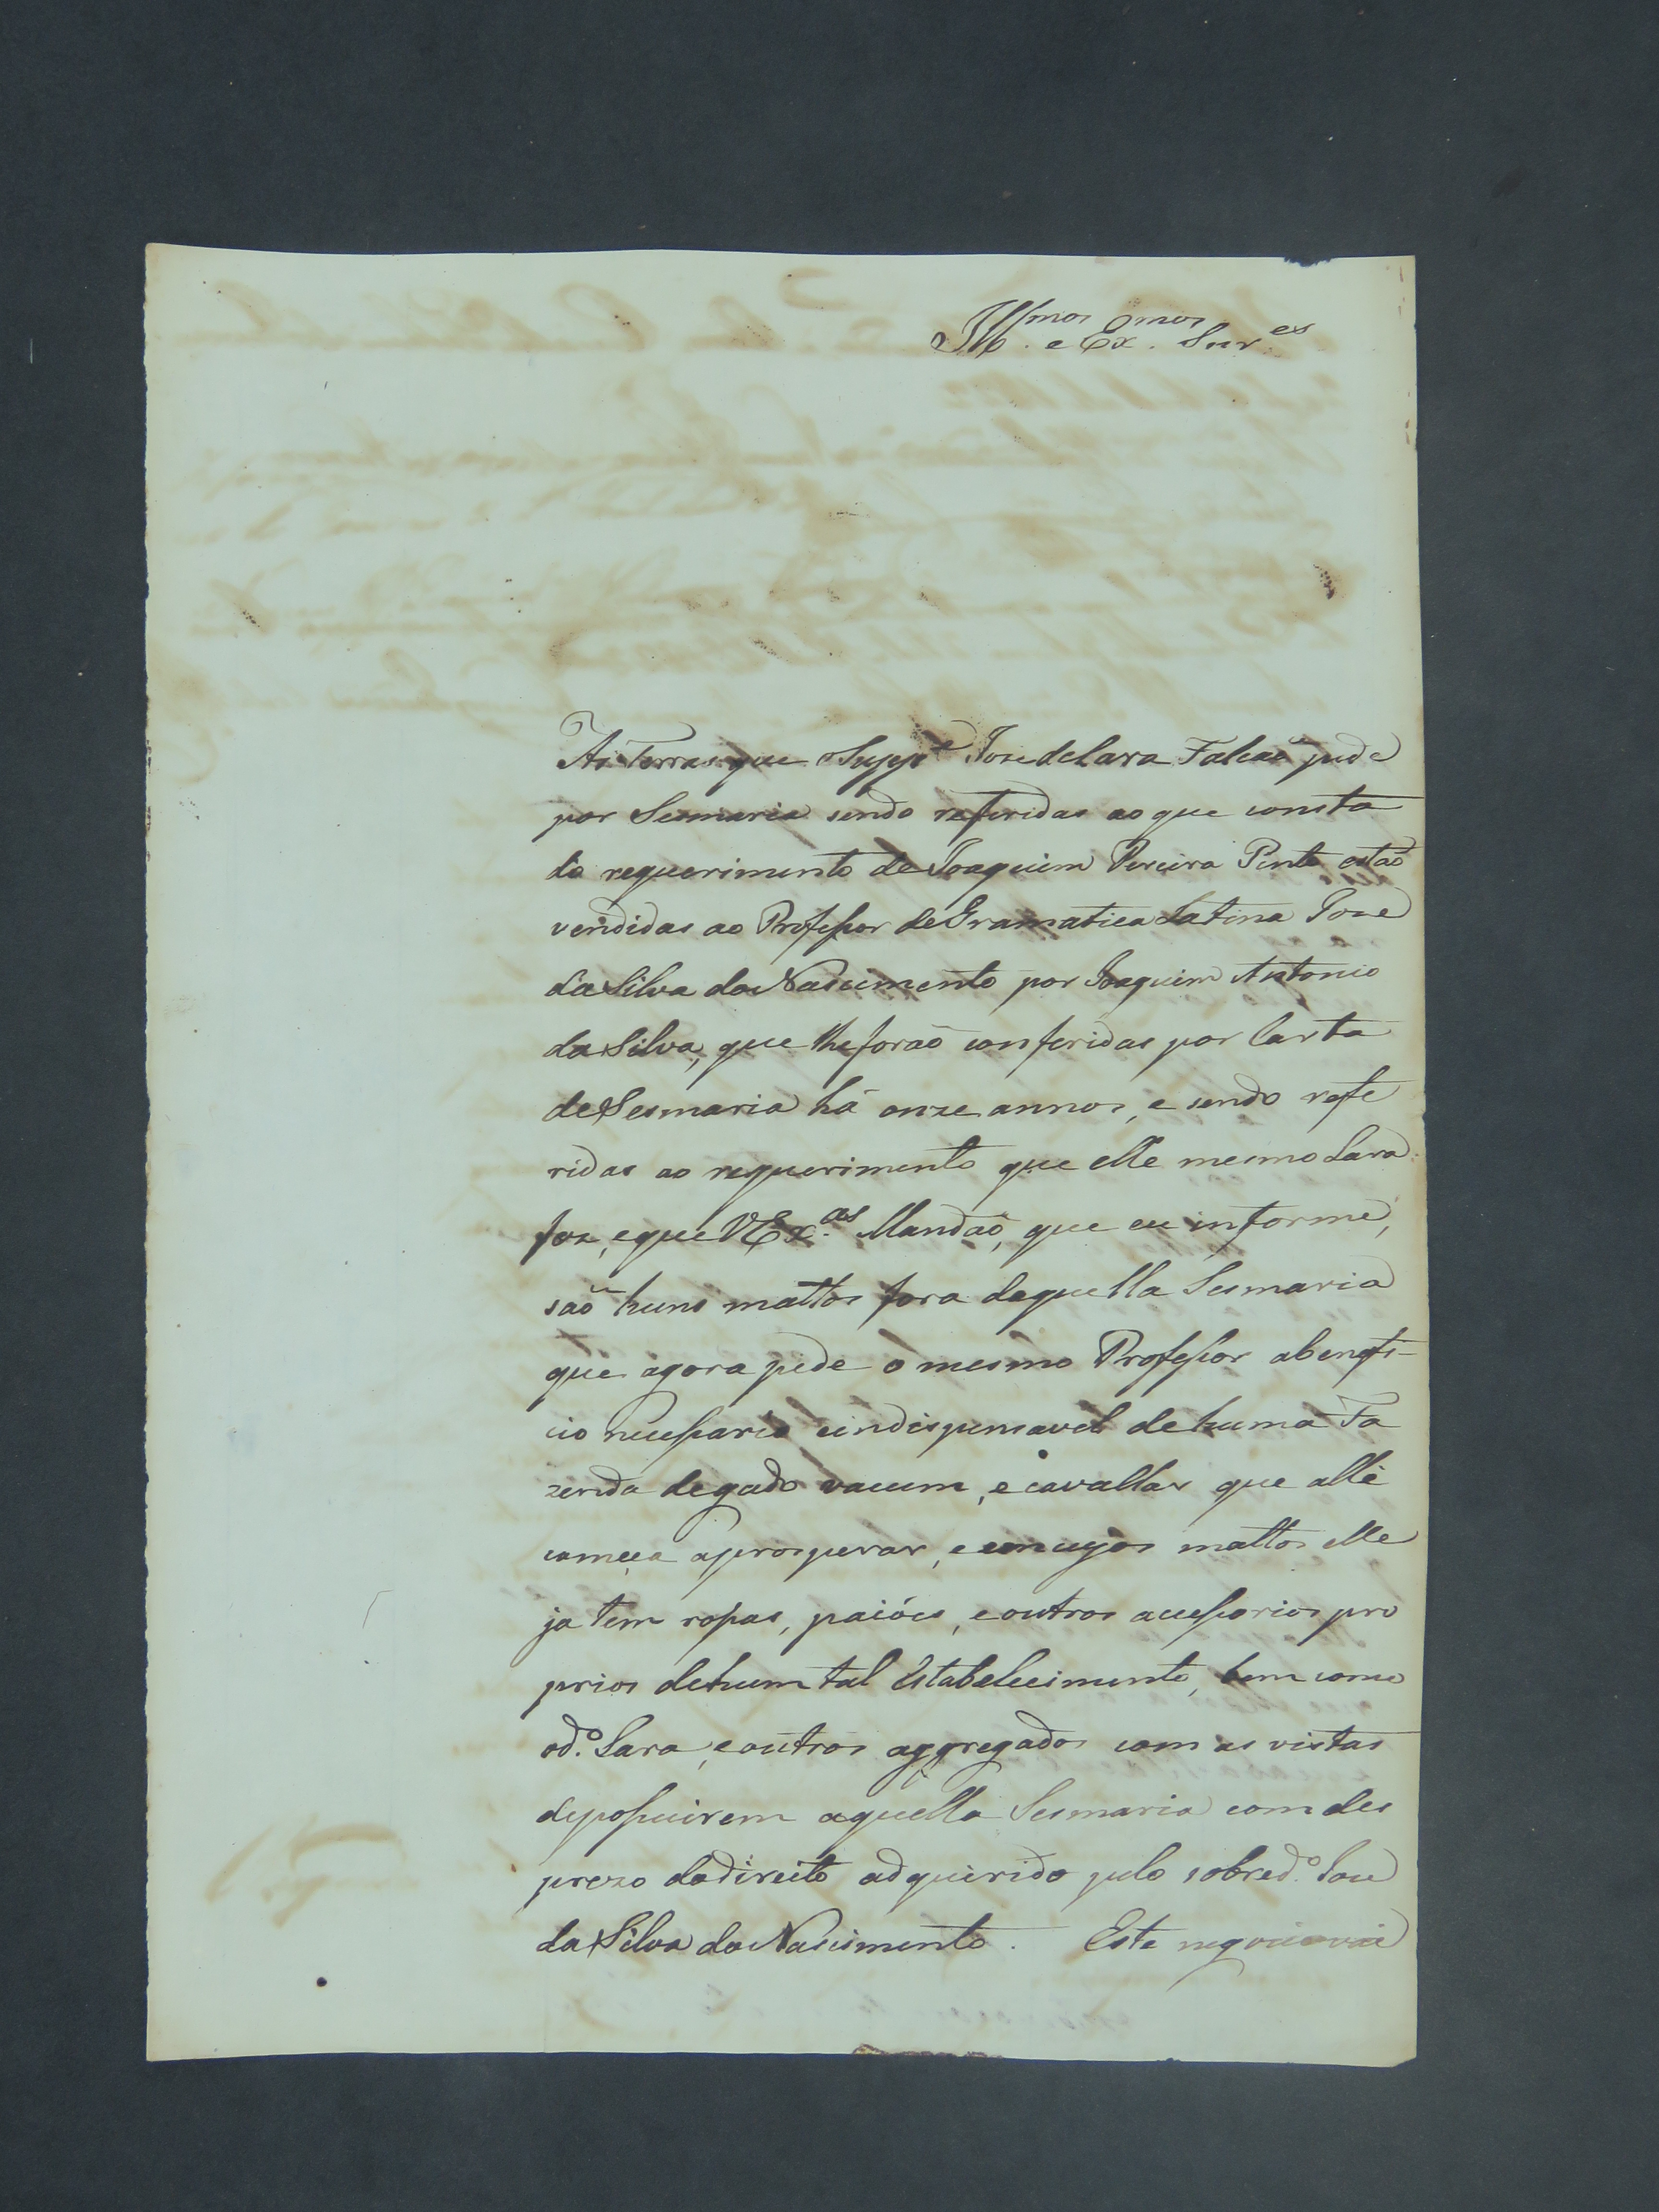 Ill.mos e Ex.mos Snr.es
As Terras que Supp.e Joze de Lara Falcaõ pede
por Sesmaria sendo referidas ao que consta
do requerimento de Joaquim Pereira Pinto estaõ
vendidas ao Professor de Gramatica Latina Joze
da Silva do Nascimento por Joaquim Antonio
da Silva, que lhe foraõ conferidas por Carta
de Sesmaria há onze annos, e sendo refe
ridas ao requerimento que elle mesmo Lara
fez, e que V Ex.as Mandaõ, que eu informe,
saõ huns mattos fora daquella Sesmaria
que agora pede o mesmo Professor a benefi-
cio necessario e indispensavel de huma Fa
zenda de gado vacum, e cavallar que alli
começa a prosperar, e em cujos mattos elle
ja tem rossas, paióes, e outros accessorios pro
prios de hum tal Estabelecimento, bem como
o d.o Lara, e outros aggregados com as vistas
de possuirem aquella Sesmaria com des
prezo do direito adquerido pelo sobred.o Joze
da Silva do Nascimento. Este negocio vai